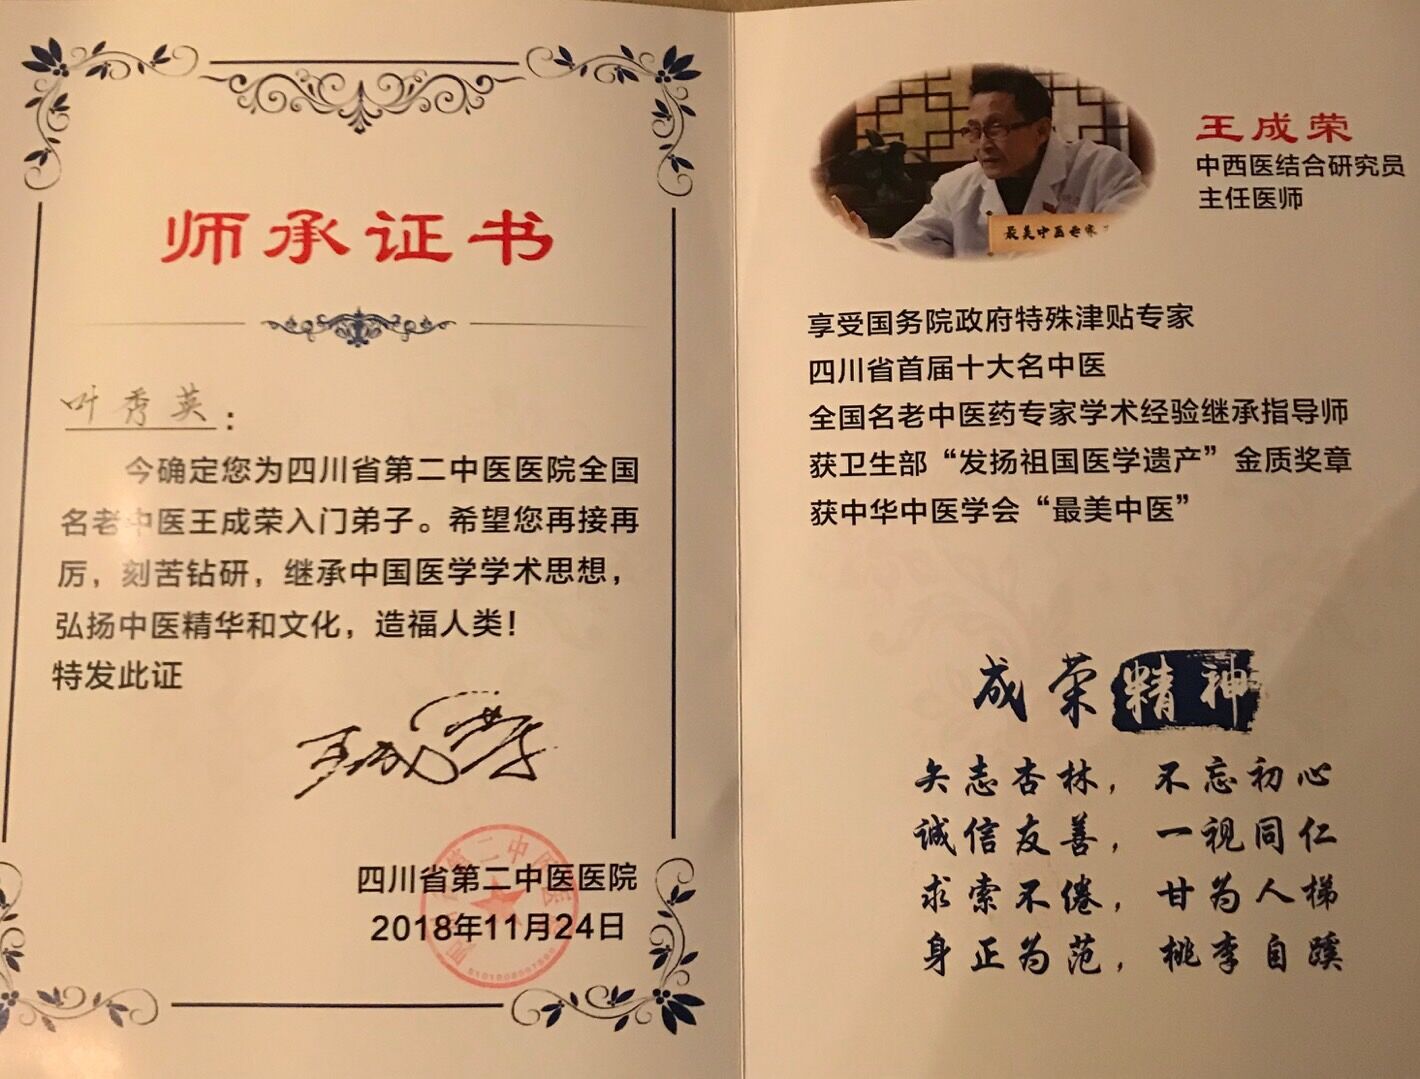 师承证书
叶秀英：
今确定您为四川省第二中医医院全国
名老中医王成荣入门弟子。希望您再接再
厉，刻苦钻研，继承中国医学学术思想，
弘扬中医精华和文化，造福人类！
特发此证
王成荣
四川省第二中医医院
2018年11月24日
王成荣
中西医结合研究员
主任医师
最美中医专家
享受国务院政府特殊津贴专家
四川省首届十大名中医
全国名老中医药专家学术经验继承指导师
获卫生部“发扬祖国医学遗产”金质奖章
获中华中医学会“最美中医”
成荣精神
矢志杏林，不忘初心
诚信友善，一视同仁
求索不倦，甘为人梯
身正为范，桃李自蹊